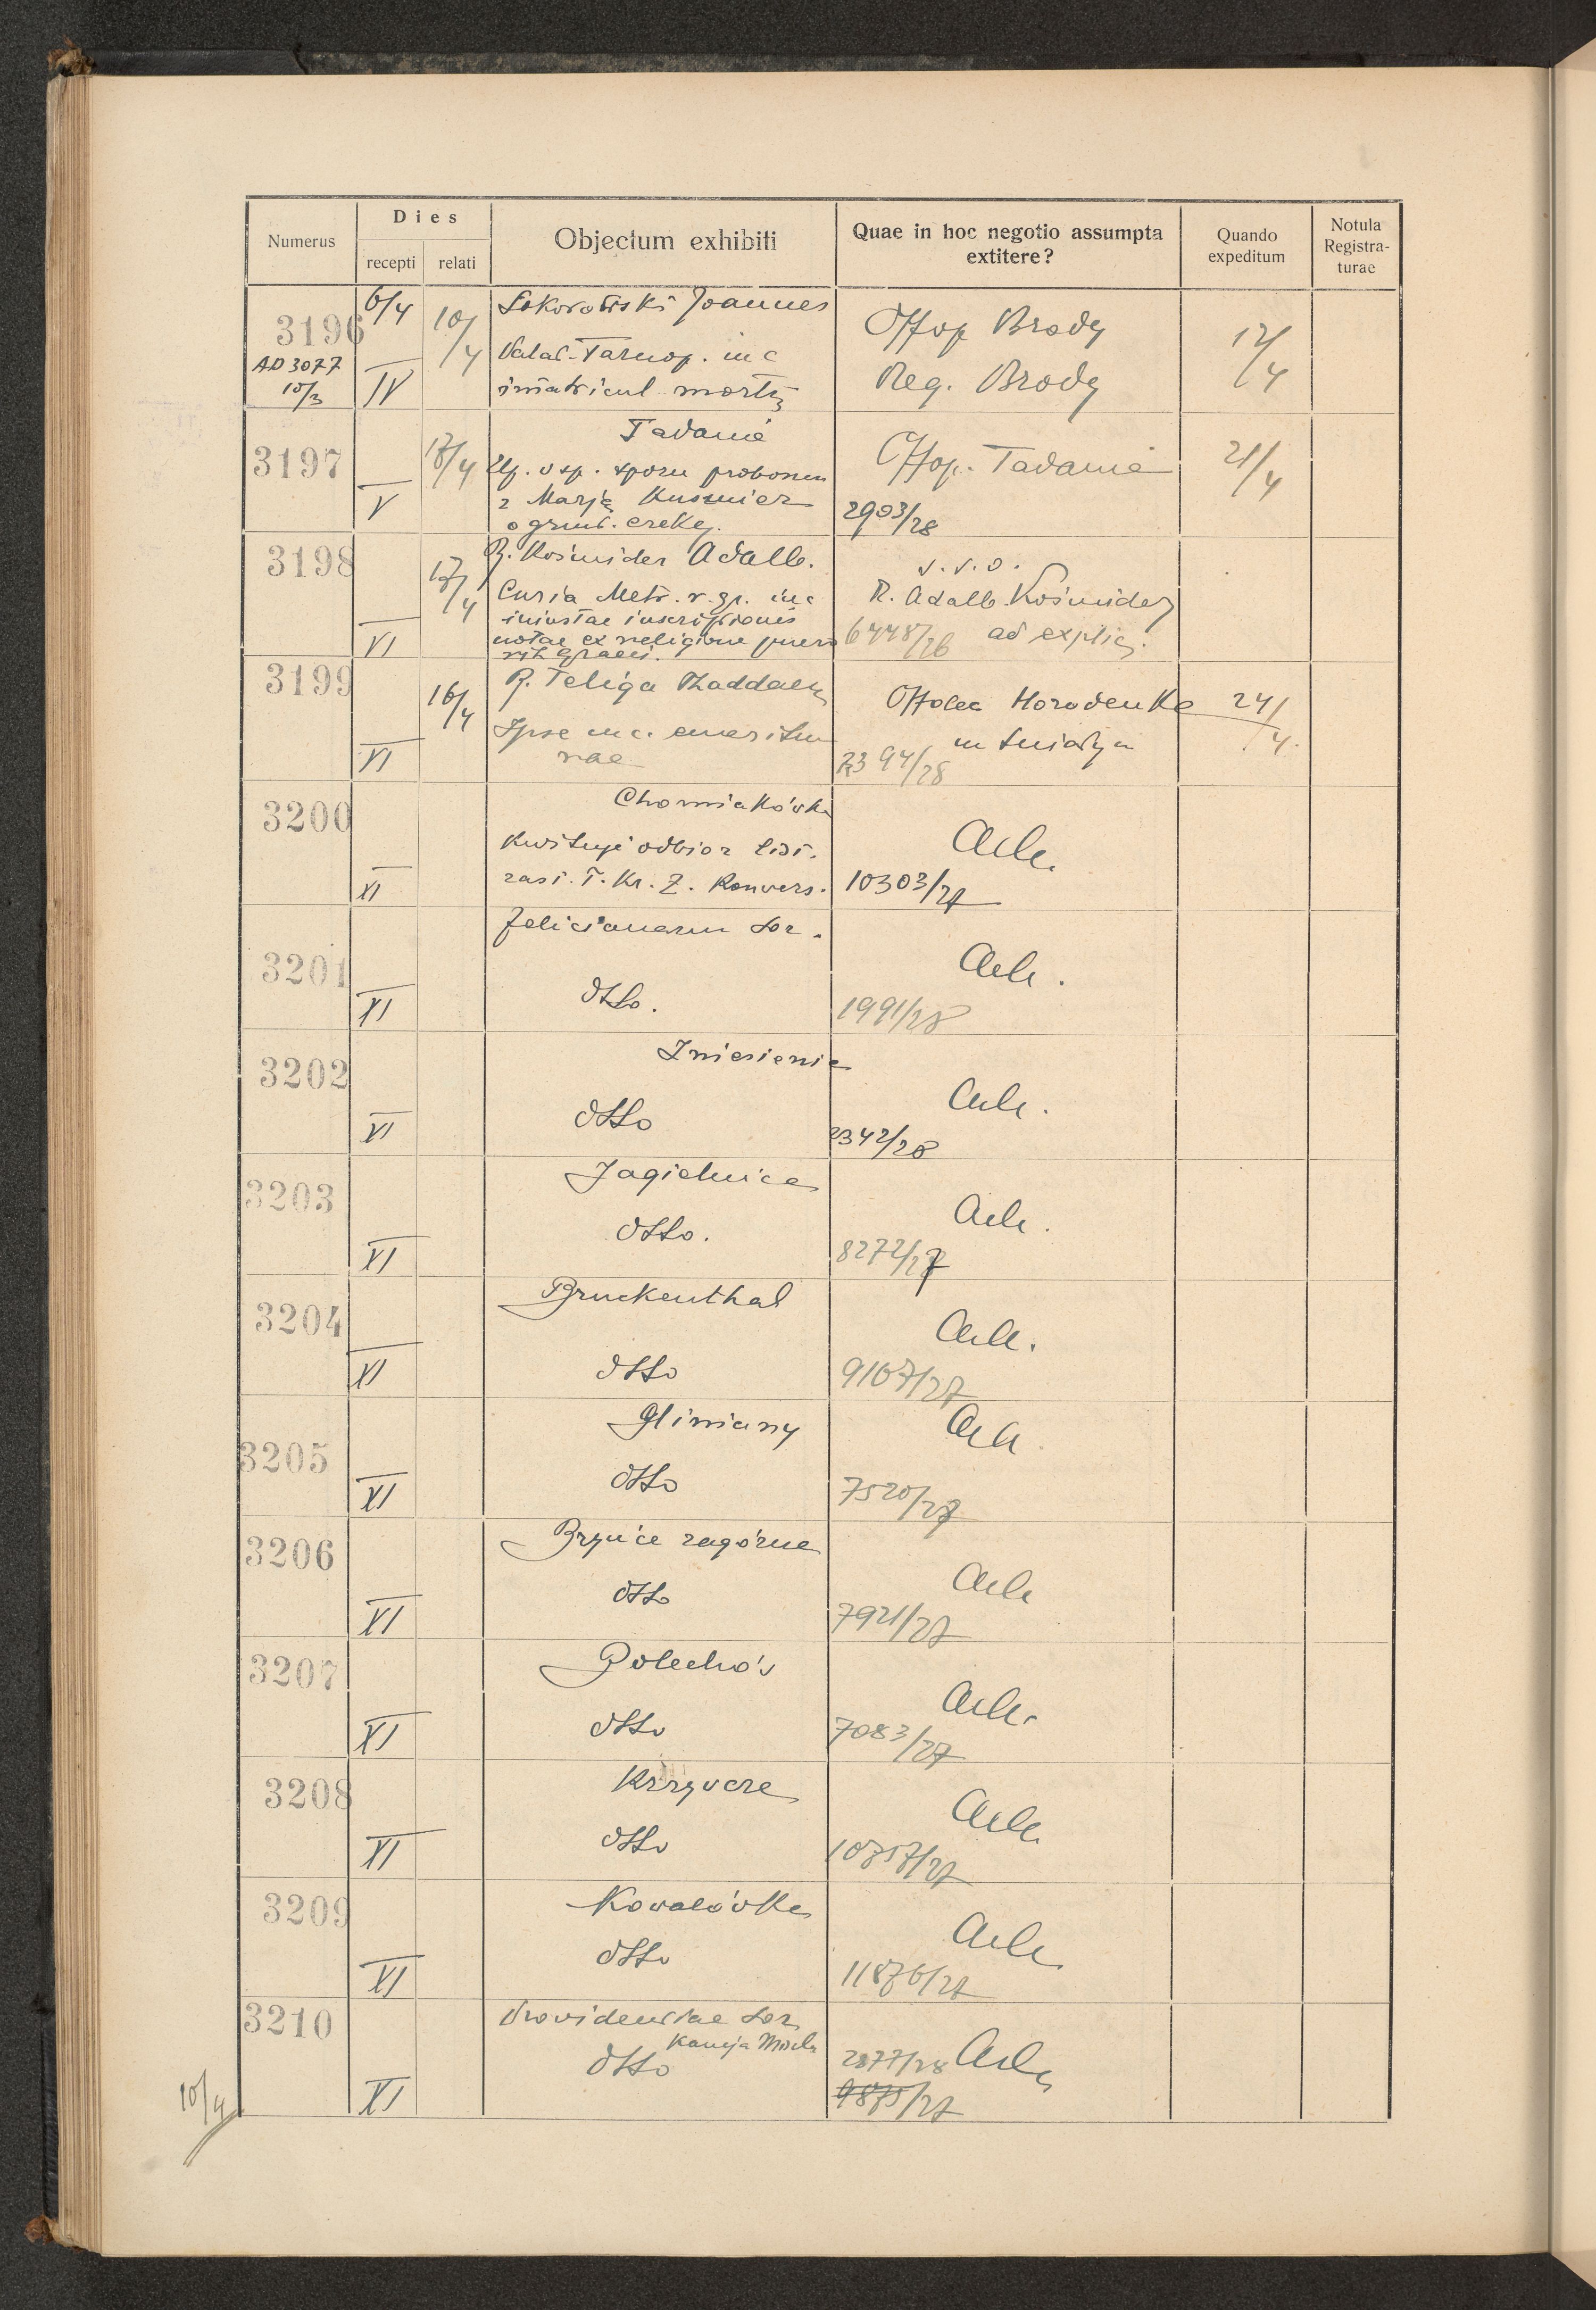 Numerus
Dies
recepti
relati
Objectum exhibiti
Quae in hoc negotio assumpta
extitere?
Quando
expeditum
Notula
Registra-
turae
3196
AD 3077
10/3
6/4
IV
10/4
Sokorowski Joannes
Palat. Tarnop. in c
imatricul mortis
Offop Brody
Reg. Brody
12/4
3197
V
17/4
Tadanie
sp. sporu probosze
z Marją Kusznier
o grunt. erekc.
Offop. Tadanie
2903/28
21/4
3198
VI
17/4
R. Kośmider Adalb.
Curia Metr. r. gr. in c
iniustae inscriptionis
notae ex religione pueri
rit. graeci.
V. V. O.
R. Adalb. Kośmider
6448/26 ad explic.
3199
VI
16/4
R. Teliga Thaddaeus
Ipse in c. emeritu
rae
Offolec Horodenka
in Śniatyn
2394/28
24/4
3200
XI
Chomiakówka
Kwituje odbiór
zasi. T. Kr. Z. Konwers.
Acta.
10303/27
3201
XI
Felicianarum Sor.
dtto.
Acta.
1991/28
3202
XI
Zniesienie
dtto
Acta.
2342/28
3203
XI
Jagielnica
dtto.
Acta.
8272/27
3204
XI
Bruckenthal
dtto
Acta.
9107/27
3205
XI
Gliniany
dtto
Acta
7520/27
3206
XI
Brzuice zagórne
dtto
Acta
7921/27
3207
XI
Bolechów
dtto
Acta.
7083/27
3208
XI
Krzywcze
dtto
Acta
10757/27
3209
XI
Kowalówka
dtto
Acta
11876/27
3210
XI
Providentiae Sor.
dtto
2877/28 Acta
9875/27
10/4